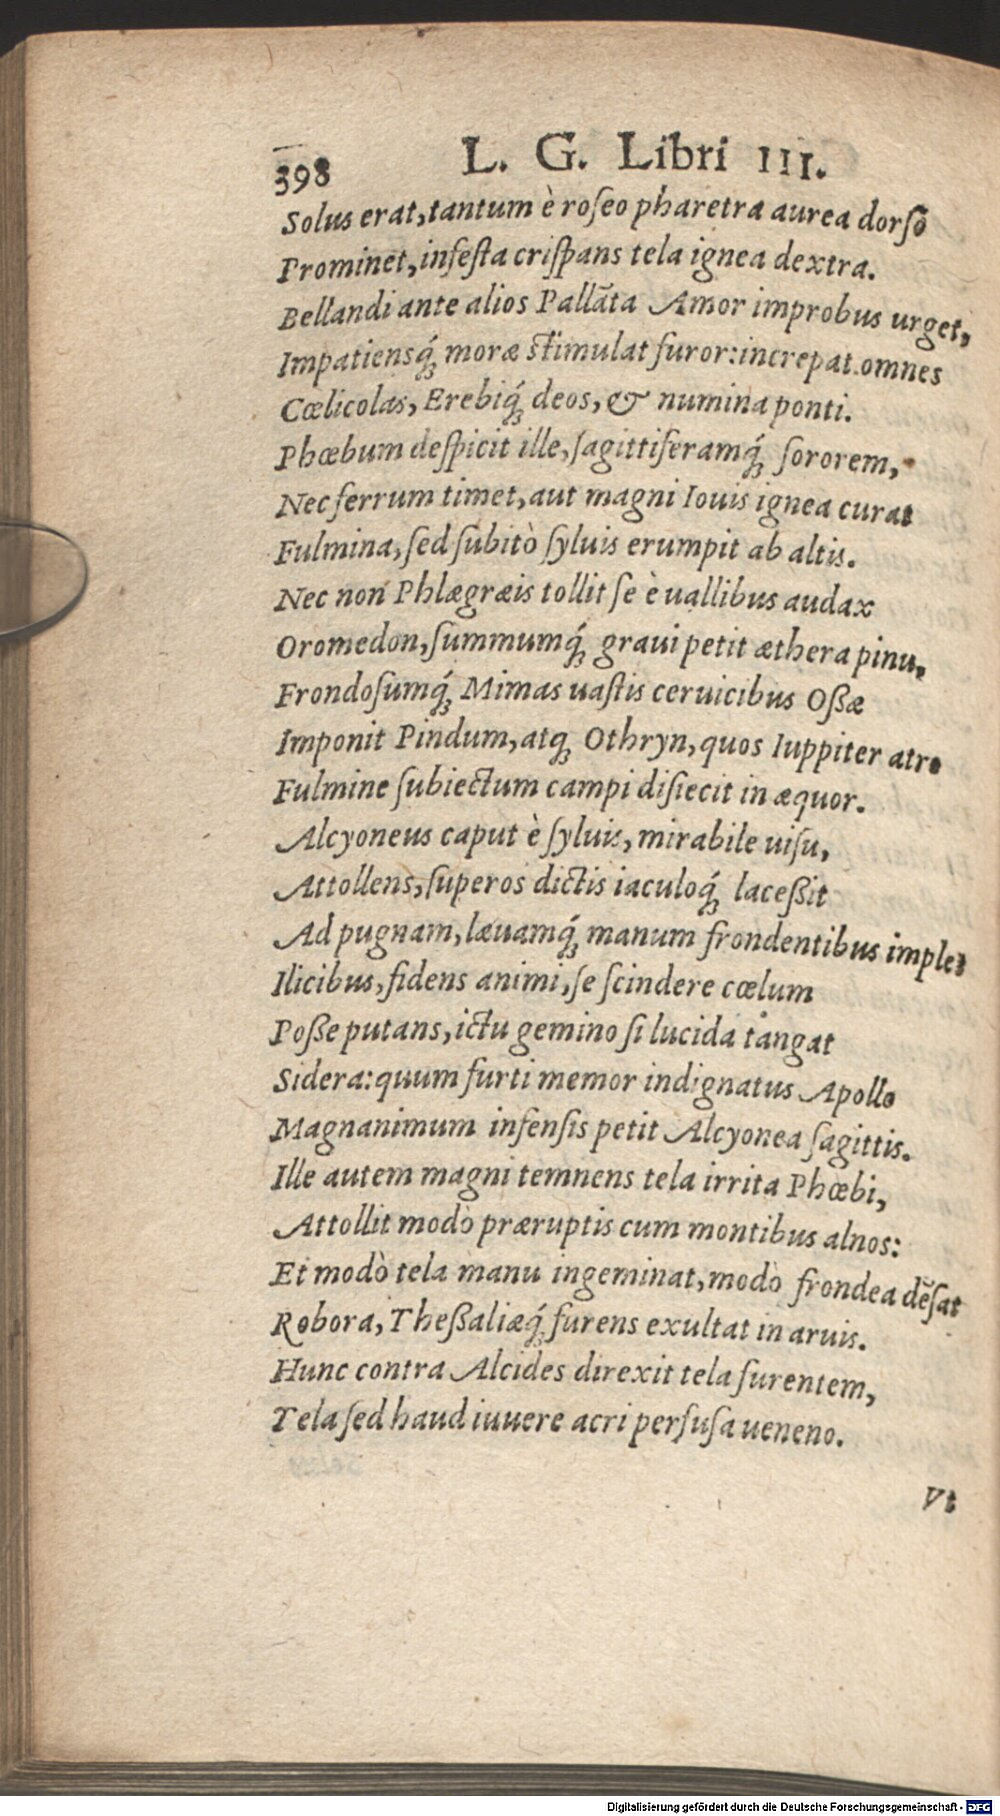 398
L. G. Libri III.
Solus erat, tantum è roſeo pharetra aurea dorſō
Prominet, infeſta criſpans tela ignea dextra.
Bellandi ante alios Pallāta Amor improbus urget,
Impatiensq́ꝫ moræ ſtimulat furor: increpat omnes
Cœlicolas, Erebiq́ꝫ deos, & numina ponti.
Phœbum deſpicit ille, ſagittiferamq́ꝫ ſororem,
Nec ferrum timet, aut magni Iouis ignea curat
Fulmina, ſed ſubitò ſyluis erumpit ab altis.
Nec non Phlægræis tollit ſe è uallibus audax
Oromedon, ſummumq́ꝫ graui petit æthera pinu,
Frondoſumq́ꝫ Mimas uaſtis ceruicibus Oßæ
Imponit Pindum, atqꝫ Othryn, quos Iuppiter atro
Fulmine ſubiectum campi diſiecit in æquor.
Alcyoneus caput è ſyluis, mirabile uiſu,
Attollens, ſuperos dictis iaculoq́ꝫ laceßit
Ad pugnam, læuamq́ꝫ manum frondentibus implet
Ilicibus, fidens animi, ſe ſcindere cœlum
Poße putans, ictu gemino ſi lucida tangat
Sidera: quum furti memor indignatus Apollo
Magnanimum infenſis petit Alcyonea ſagittis.
Ille autem magni temnens tela irrita Phœbi,
Attollit modò præruptis cum montibus alnos:
Et modò tela manu ingeminat, modò frondea dēſat
Robora, Theßaliæq́ꝫ furens exultat in aruis.
Hunc contra Alcides direxit tela furentem,
Tela ſed haud iuuere acri perfuſa ueneno.
Vt
Digitalisierung gefördert durch die Deutsche Forschungsgemeinschaft - DFG